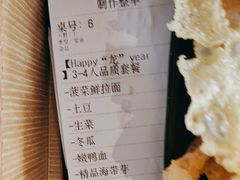 制作整单
桌号：6
【Happy“龙”year
】3-4人品质套餐
-菠菜鲜拉面
-土豆
-生菜
-冬瓜
-嫩鸭血
-精品海带芽